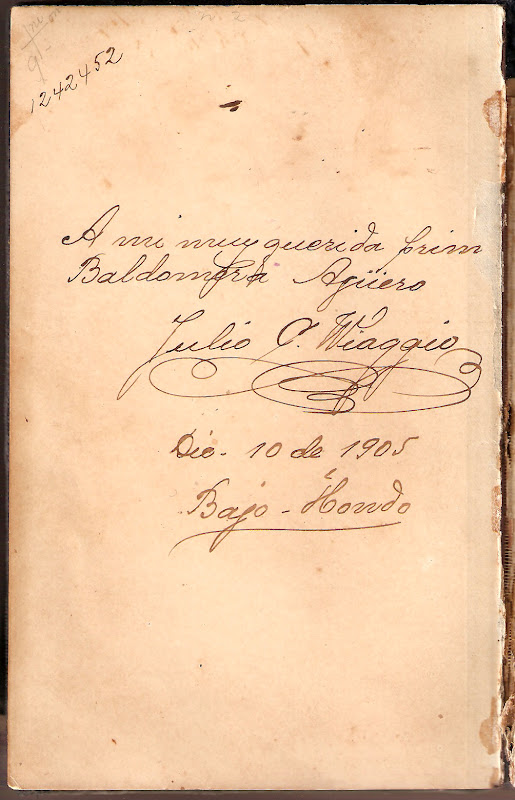 1242452
A mi muy querida prim
Baldomera Agüero
Julio C. Viaggio
Dic. 10 de 1905
Bajo-Hondo